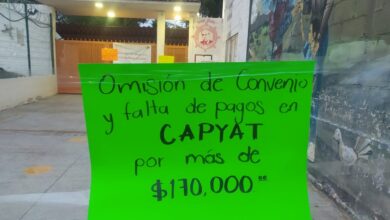 Omisión de Convenio
y falta de pagos en
CAPYAT
por más de
$170,000.00